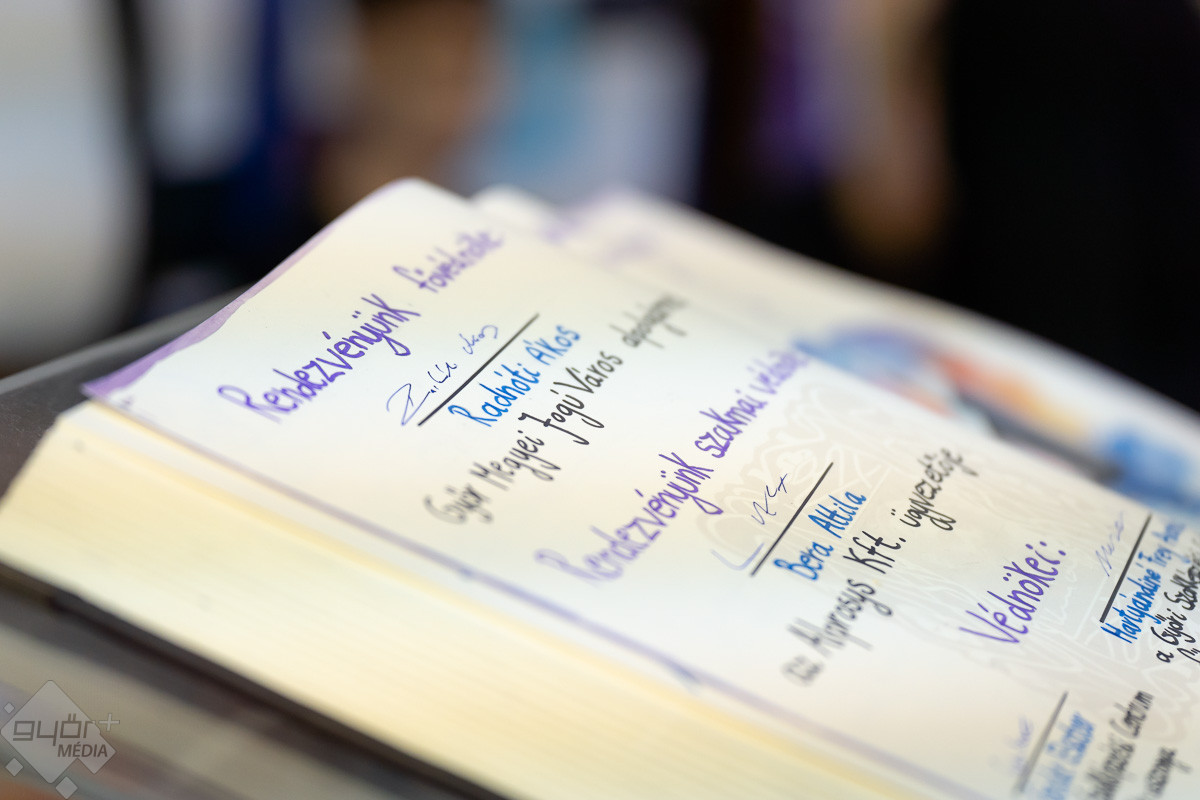 Rendezvényünk fővédnöke
Radnóti Ákos
Győr Megyei Jogú Város alpolgármestere
Rendezvényünk szakmai védnöke
Bera Attila
az Alyprosys Kft. ügyvezetője
Védnökei:
Martyánáné
a Győri
Eszter
Centrum
győr+
MÉDIA